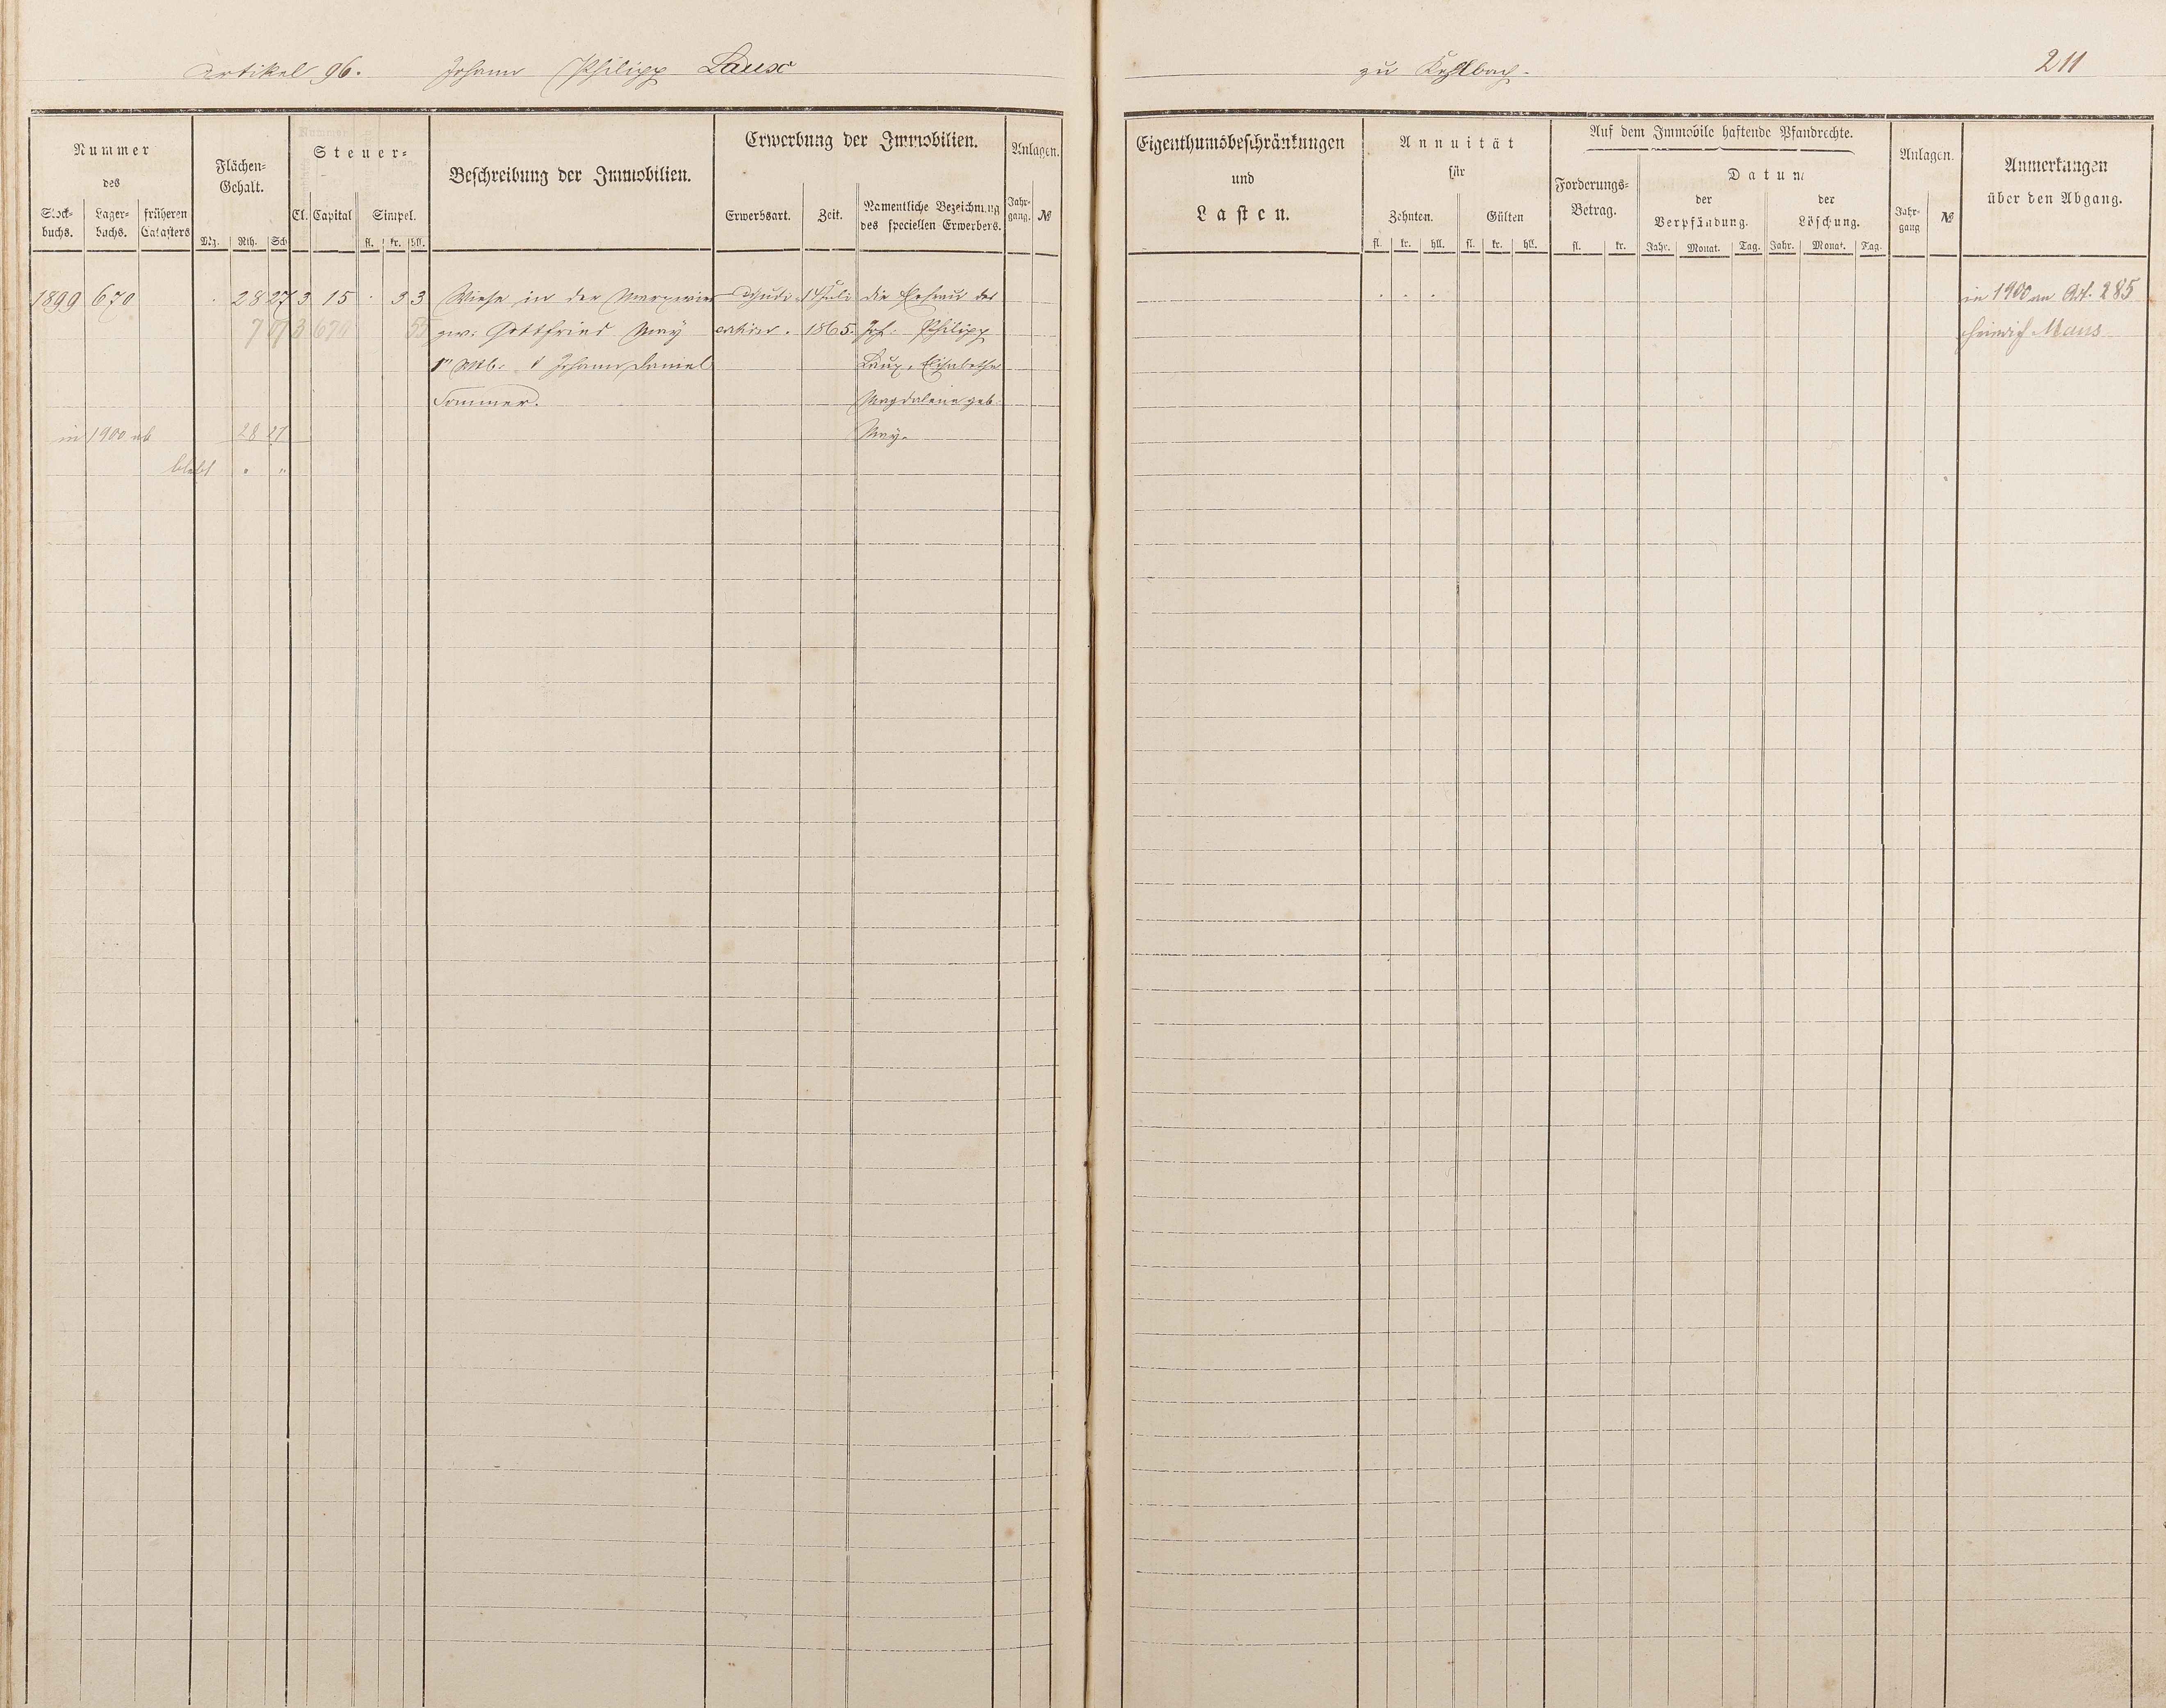 Artikel 96. Johann Philipp Laux
zu Kehlbach.
211
Nummer
des
Stock-
buchs.
Lager-
buchs.
früheren
Catasters
Flächen-
Gehalt.
Mg. Rth. Sch.
Steuer-
Cl. Capital Simpel.
fl. kr. hll.
Beschreibung der Immobilien.
Erwerbung der Immobilien.
Erwerbsart. Zeit.
Namentliche Bezeichnung
des speciellen Erwerbers.
Anlagen.
Jahr-
gang. №
Eigenthumsbeschränkungen
und
Lasten.
Annuität
für
Zehnten. Gülten
fl. kr. hll. fl. kr. hll.
Auf dem Immobile haftende Pfandrechte.
Forderungs-
Betrag.
fl. kr.
Datum
der
Verpfändung.
der
Löschung.
Jahr. Monat. Tag. Jahr. Monat. Tag.
Anlagen.
Jahr-
gang №
Anmerkungen
über den Abgang.
1899 670 28 27 3 15 3 3 Wiese in der 14 Juli die Ehefrau des in 1900 an Art. 285
7 07 3 670 55 zw: Gottfried May 1865. Joh. Philipp Heinrich Maus
Johann Daniel Laux, Elisabetha
Sommer. Magdalena geb.
in 1900 ab 28 27 May.
bleibt " "